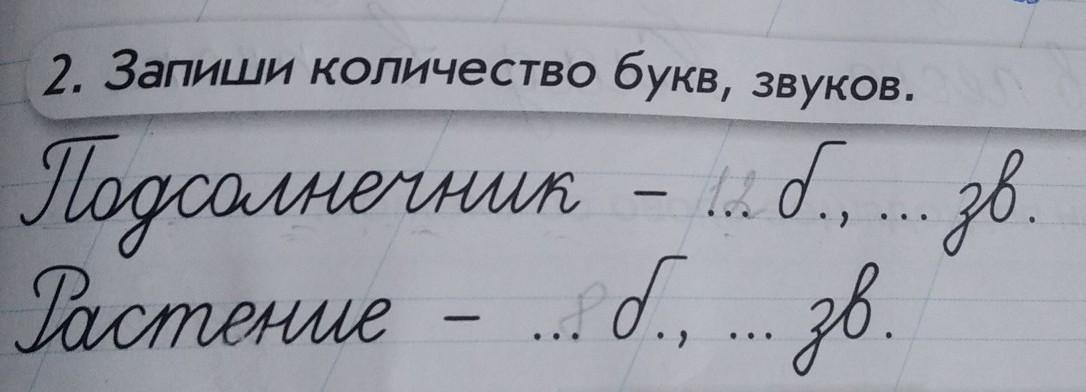 2. Запиши количество букв, звуков.
Подсолнечник - ...12 б., ... зв.
Растение - ...8 б., ... зв.